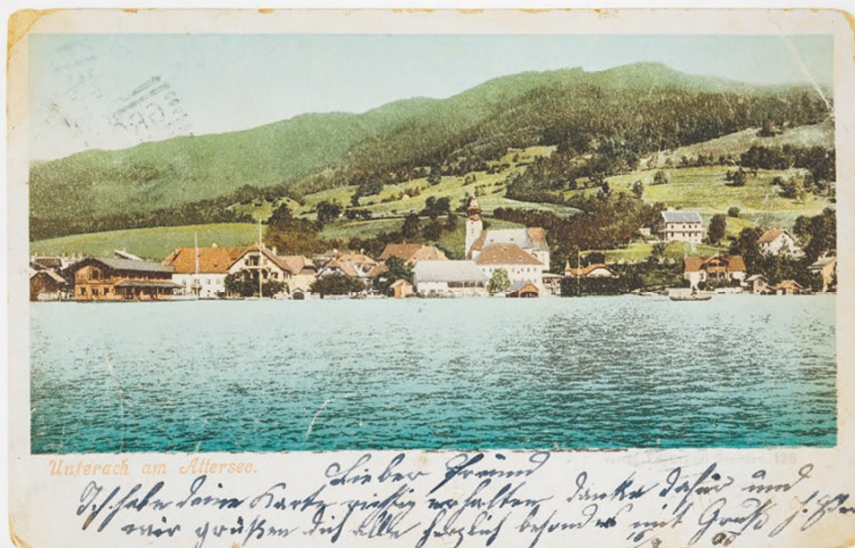 Unterach am Attersee.
Lieber Freund
Ich habe deine Karte richtig erhalten danke dafür und
wir grüßen dich alle herzlich besonders mit Gruß